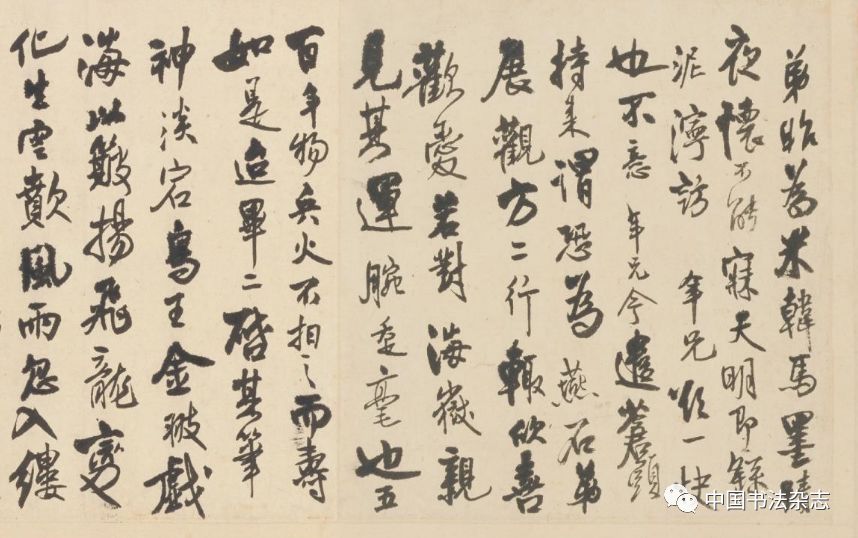 弟昨為米韓馬墨蹟
夜懷不能寐天明即
泥濘訪 年兄欲一快
也不意 年兄今遣蒼頭
持來謂恐為 燕石弟
展觀方二行輒欣喜
歡愛若對海嶽親
見其運腕垂毫也五
百年物兵火不相而壽
如是迨畢二啓其筆
神淡宕鳥王金翅戲
海以簸揚飛龍變
化生雲歕風雨忽入縷
中国书法杂志